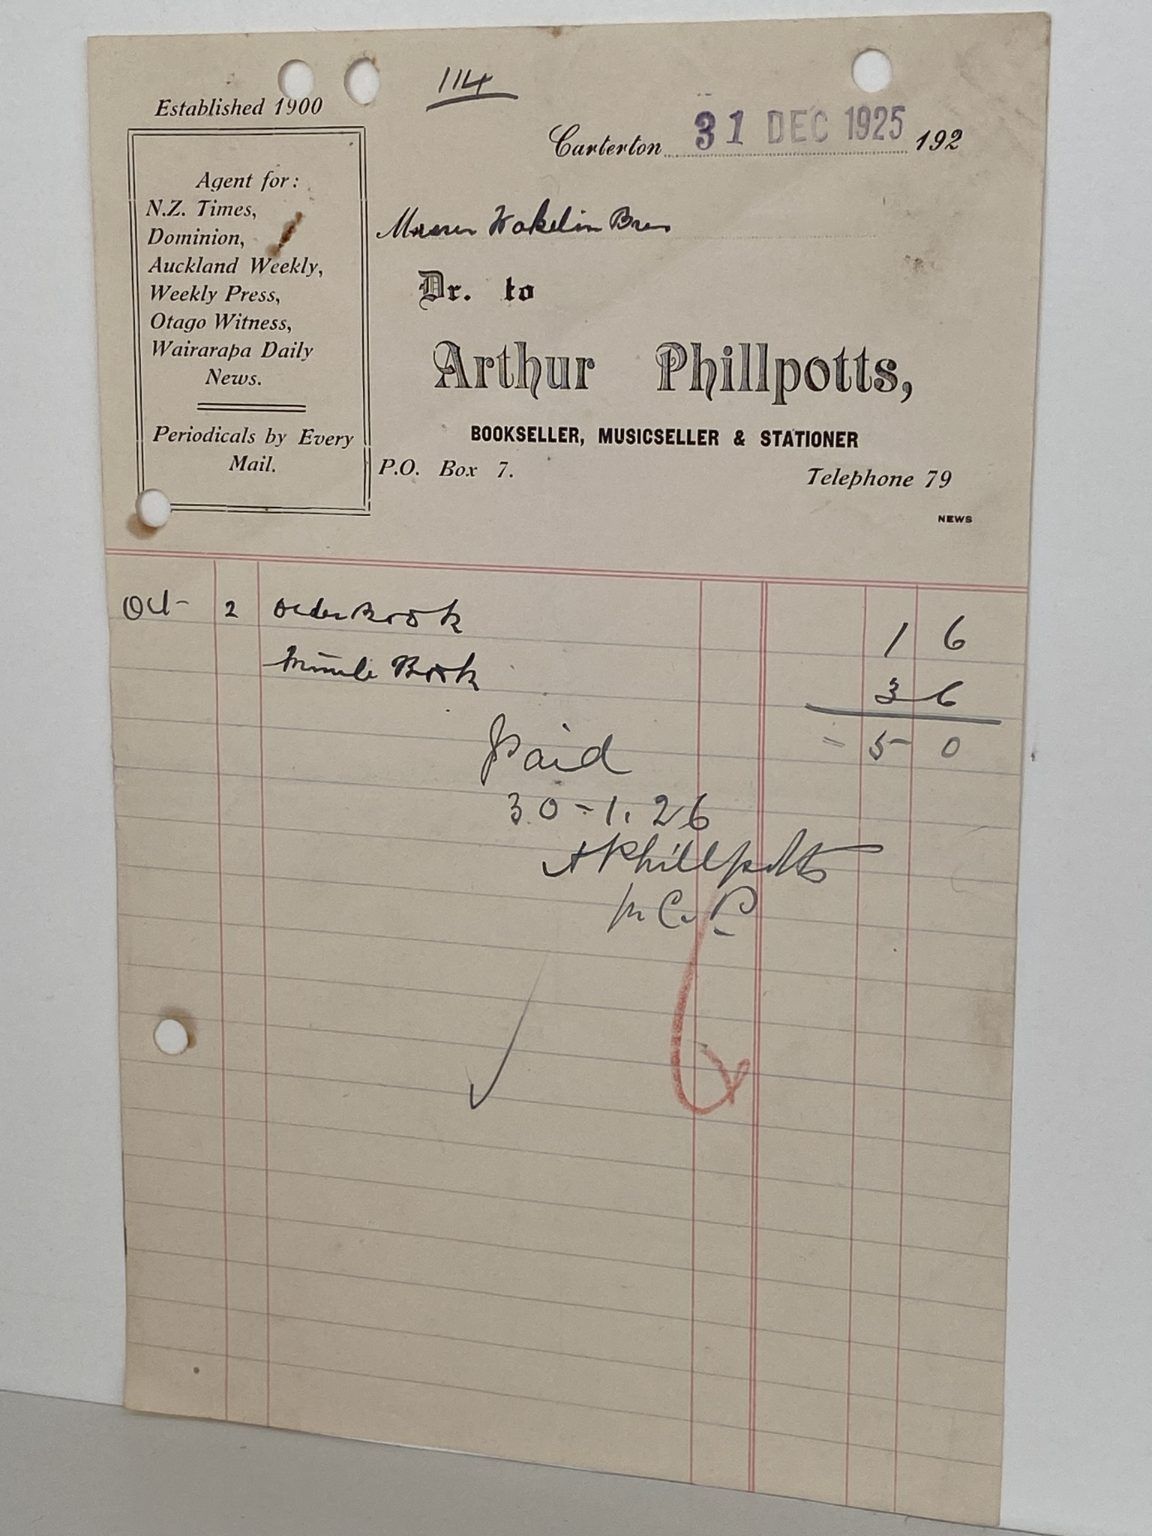 114
Established 1900
Carterton 31 DEC 1925 192
Agent for:
N.Z. Times,
Dominion,
Auckland Weekly,
Weekly Press,
Otago Witness,
Wairarapa Daily
News.
Periodicals by Every
Mail.
Messrs Wakelin Bros
Dr. to
Arthur Phillpotts,
BOOKSELLER, MUSICSELLER & STATIONER
P.O. Box 7. Telephone 79
NEWS
Oct 2 Order Book 1 6
Minute Book 3 6
= 5 0
Paid
30-1.26
A Phillpotts